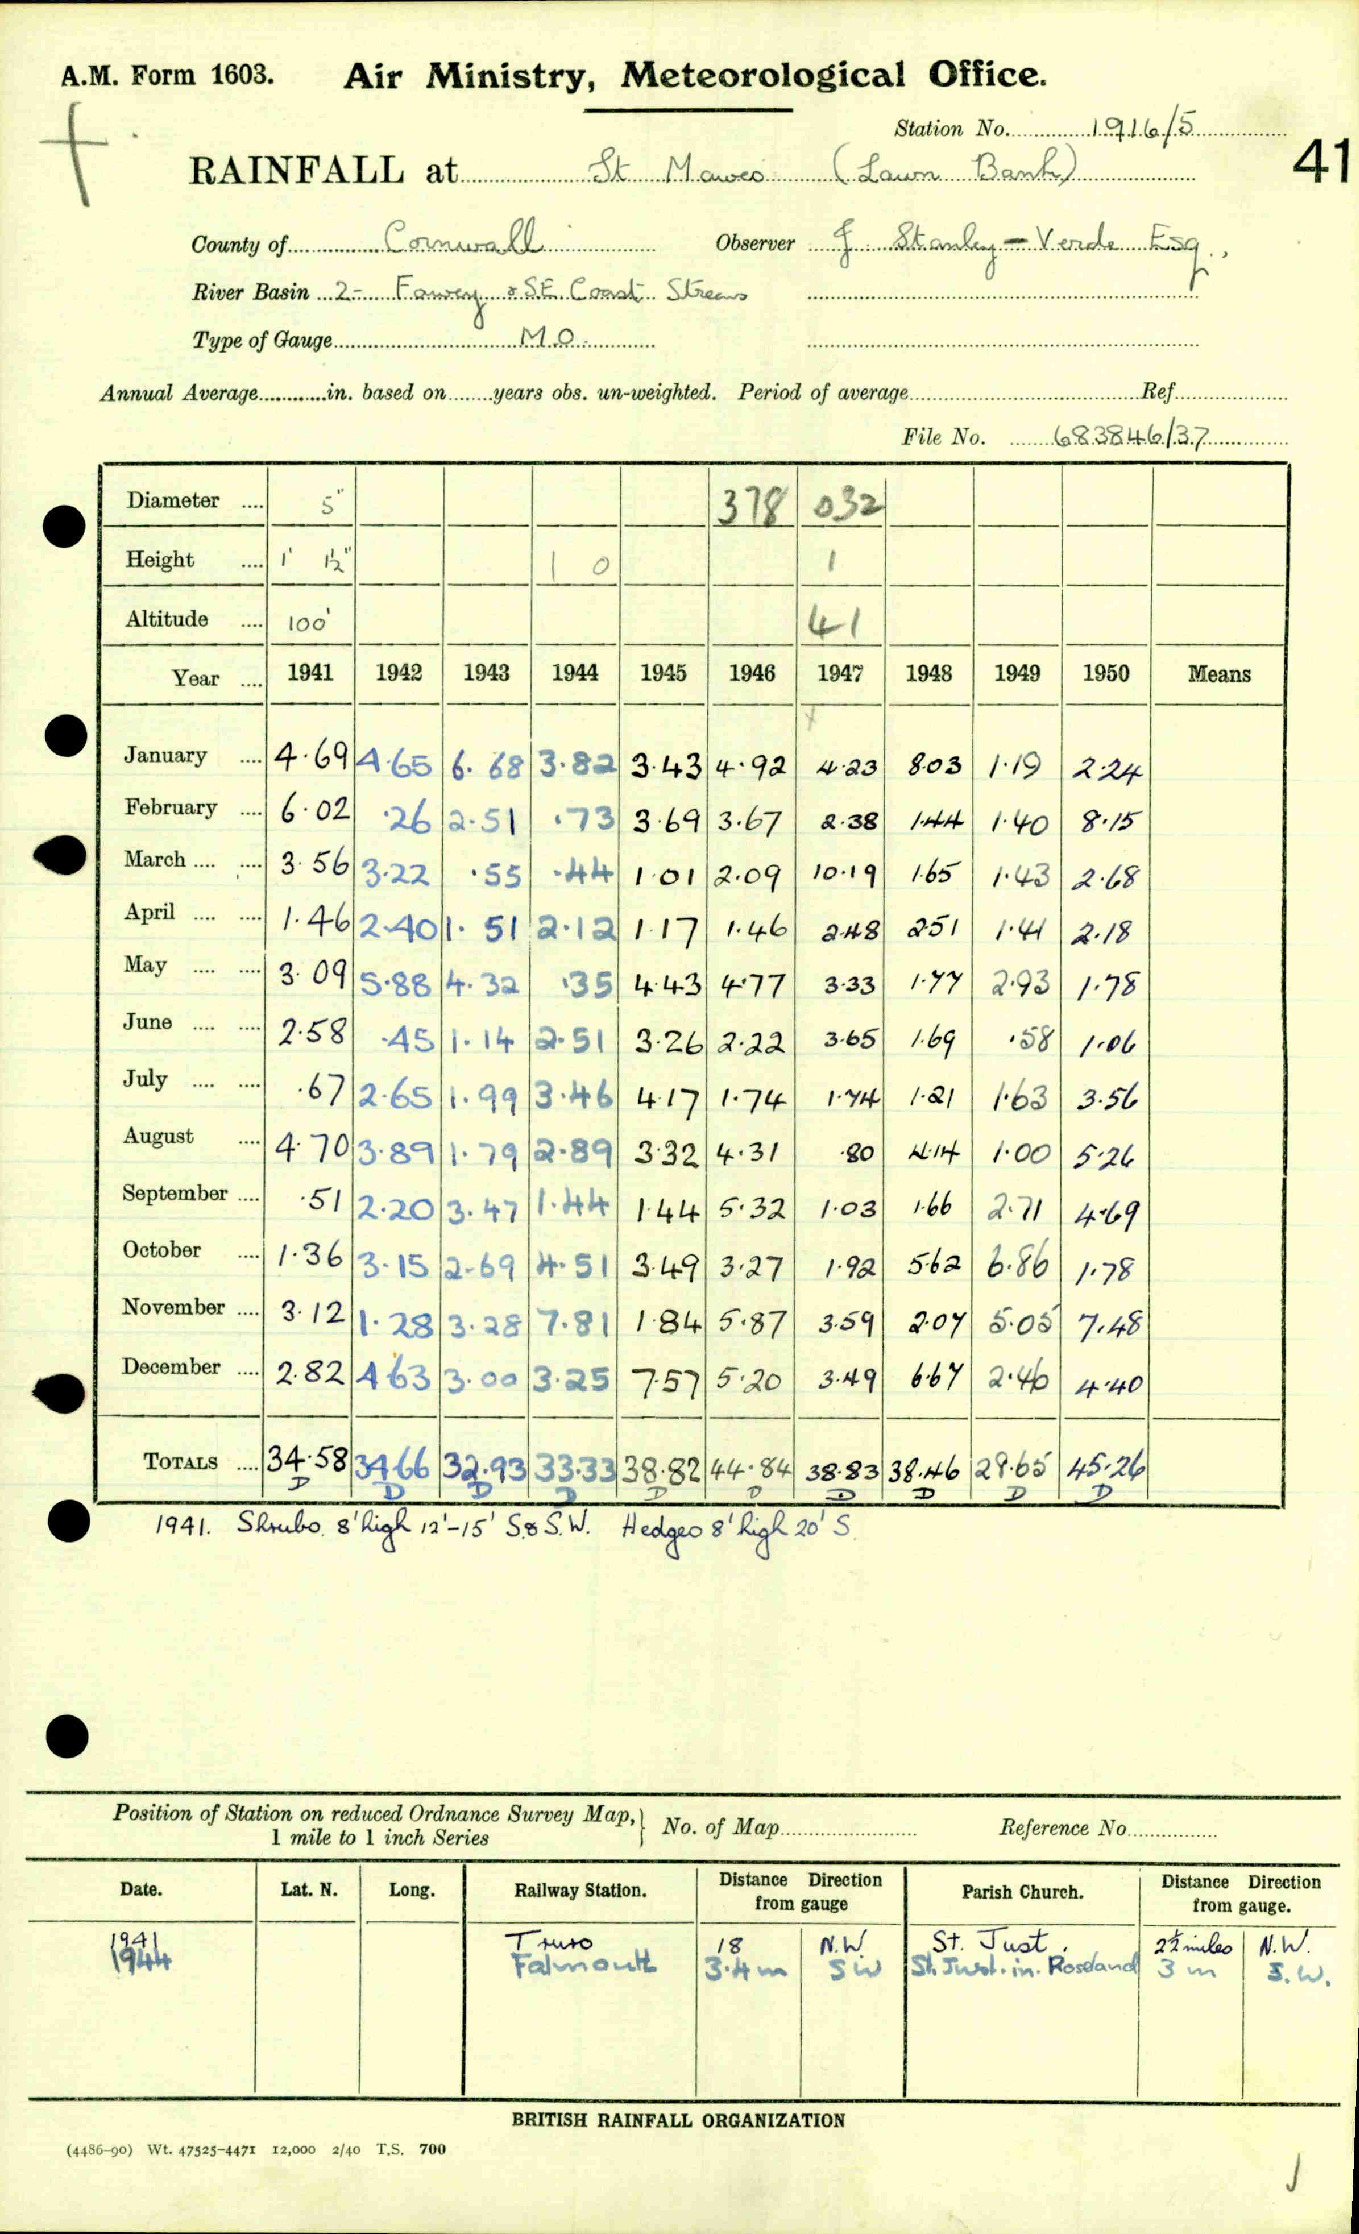 A.M. Form 1603. Air Ministry, Meteorological Office.
Station No. 1916/5
41
RAINFALL at St Mawes (Lawn Bank)
County of Cornwall Observer J Stanley-Verde Esq.,
River Basin 2- Fowey & SE Coast Streams
Type of Gauge M.O.
Annual Average in. based on years obs. un-weighted. Period of average Ref
File No. 683846/37
Diameter 5" 378 032
Height 1' 1½" 1 0 1
Altitude 100' 41
Year 1941 1942 1943 1944 1945 1946 1947 1948 1949 1950 Means
January 4.69 4.65 6.68 3.82 3.43 4.92 4.23 8.03 1.19 2.24
February 6.02 .26 2.51 .73 3.69 3.67 2.38 1.44 1.40 8.15
March 3.56 3.22 .55 .44 1.01 2.09 10.19 1.65 1.43 2.68
April 1.46 2.40 1.51 2.12 1.17 1.46 2.48 2.51 1.41 2.18
May 3.09 5.88 4.32 .35 4.43 4.77 3.33 1.77 2.93 1.78
June 2.58 .45 1.14 2.51 3.26 2.22 3.65 1.69 .58 1.06
July .67 2.65 1.99 3.46 4.17 1.74 1.74 1.21 1.63 3.56
August 4.70 3.89 1.79 2.89 3.32 4.31 .80 4.14 1.00 5.26
September .51 2.20 3.47 1.44 1.44 5.32 1.03 1.66 2.71 4.69
October 1.36 3.15 2.69 4.51 3.49 3.27 1.92 5.62 6.86 1.78
November 3.12 1.28 3.28 7.81 1.84 5.87 3.59 2.07 5.05 7.48
December 2.82 4.63 3.00 3.25 7.57 5.20 3.49 6.67 2.46 4.40
TOTALS 34.58 34.66 32.93 33.33 38.82 44.84 38.83 38.46 28.65 45.26
D D D D D D D D D D
1941. Shrubs 8' high 12'-15' S. & S.W. Hedges 8' high 20' S.
Position of Station on reduced Ordnance Survey Map, 1 mile to 1 inch Series No. of Map Reference No.
Date. Lat. N. Long. Railway Station. Distance Direction from gauge Parish Church. Distance Direction from gauge.
1941 Truro 18 N.W St. Just. 2½ miles N.W.
1944 Falmouth 3.4 m SW St. Just. in. Roseland 3 m S.W.
BRITISH RAINFALL ORGANIZATION
(4486-90) Wt. 47525-4471 12,000 2/40 T.S. 700